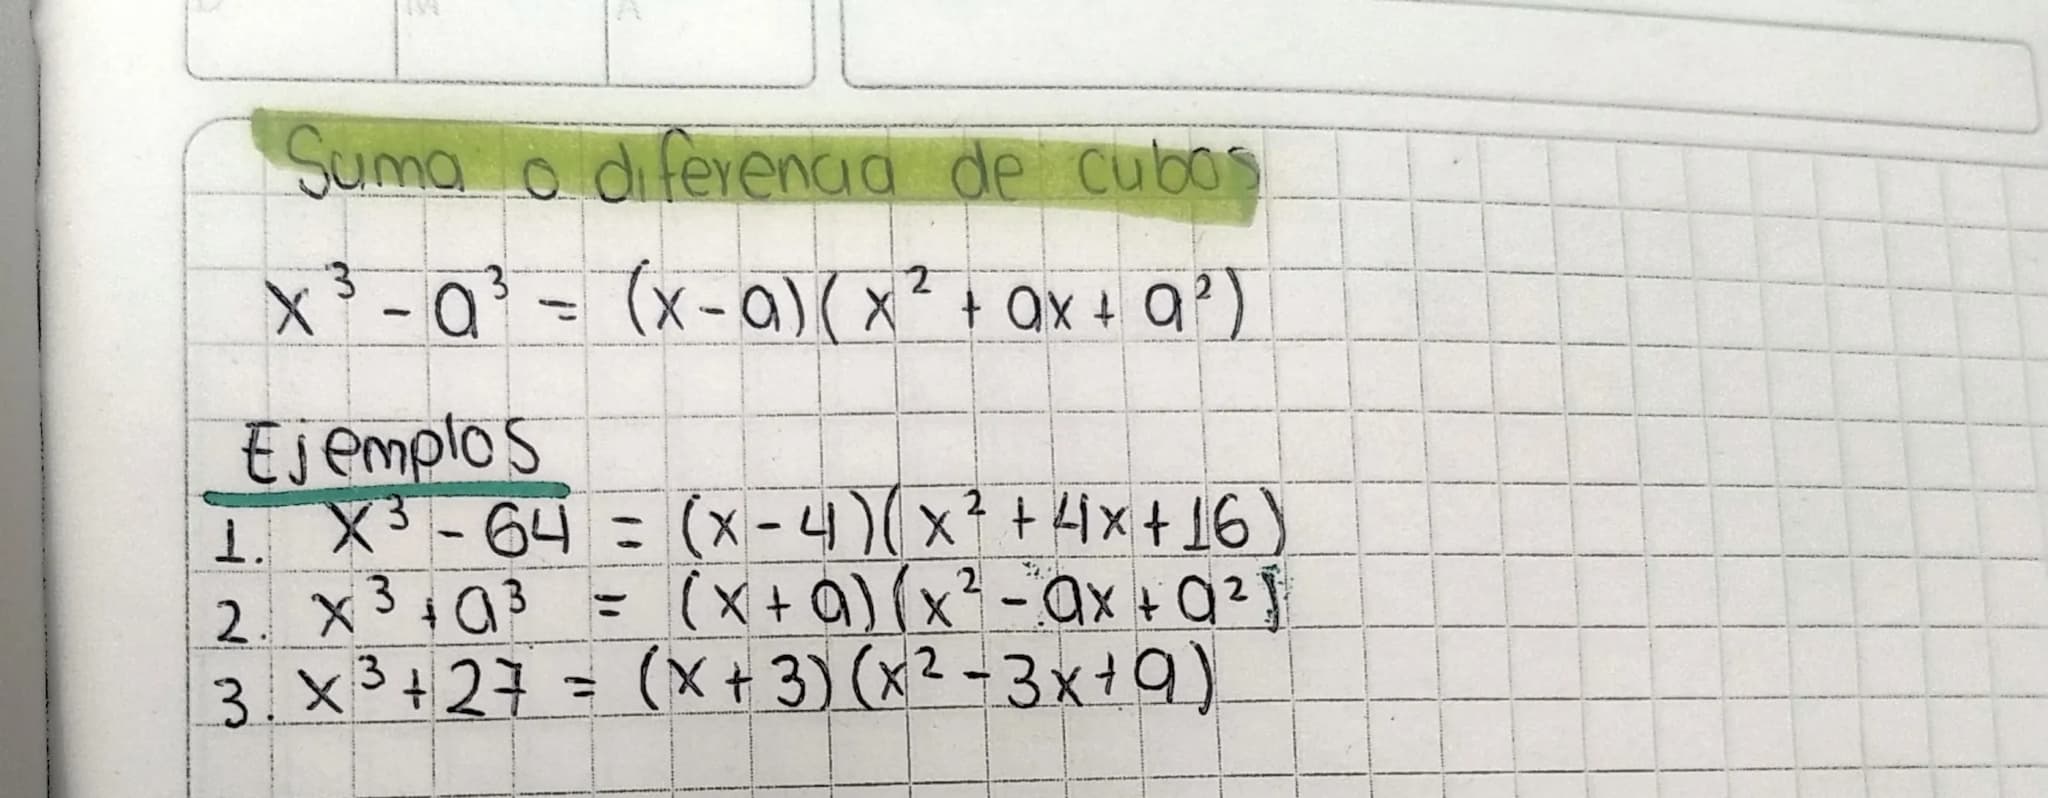 D M A
Suma o diferencia de cubos
x³ - a³ = (x-a)(x² + ax + a²)
Ejemplos
1. x³ - 64 = (x-4)(x² + 4x + 16)
2. x³ + a³ = (x + a)(x² - ax + a²)
3. x³ + 27 = (x + 3)(x² - 3x + 9)